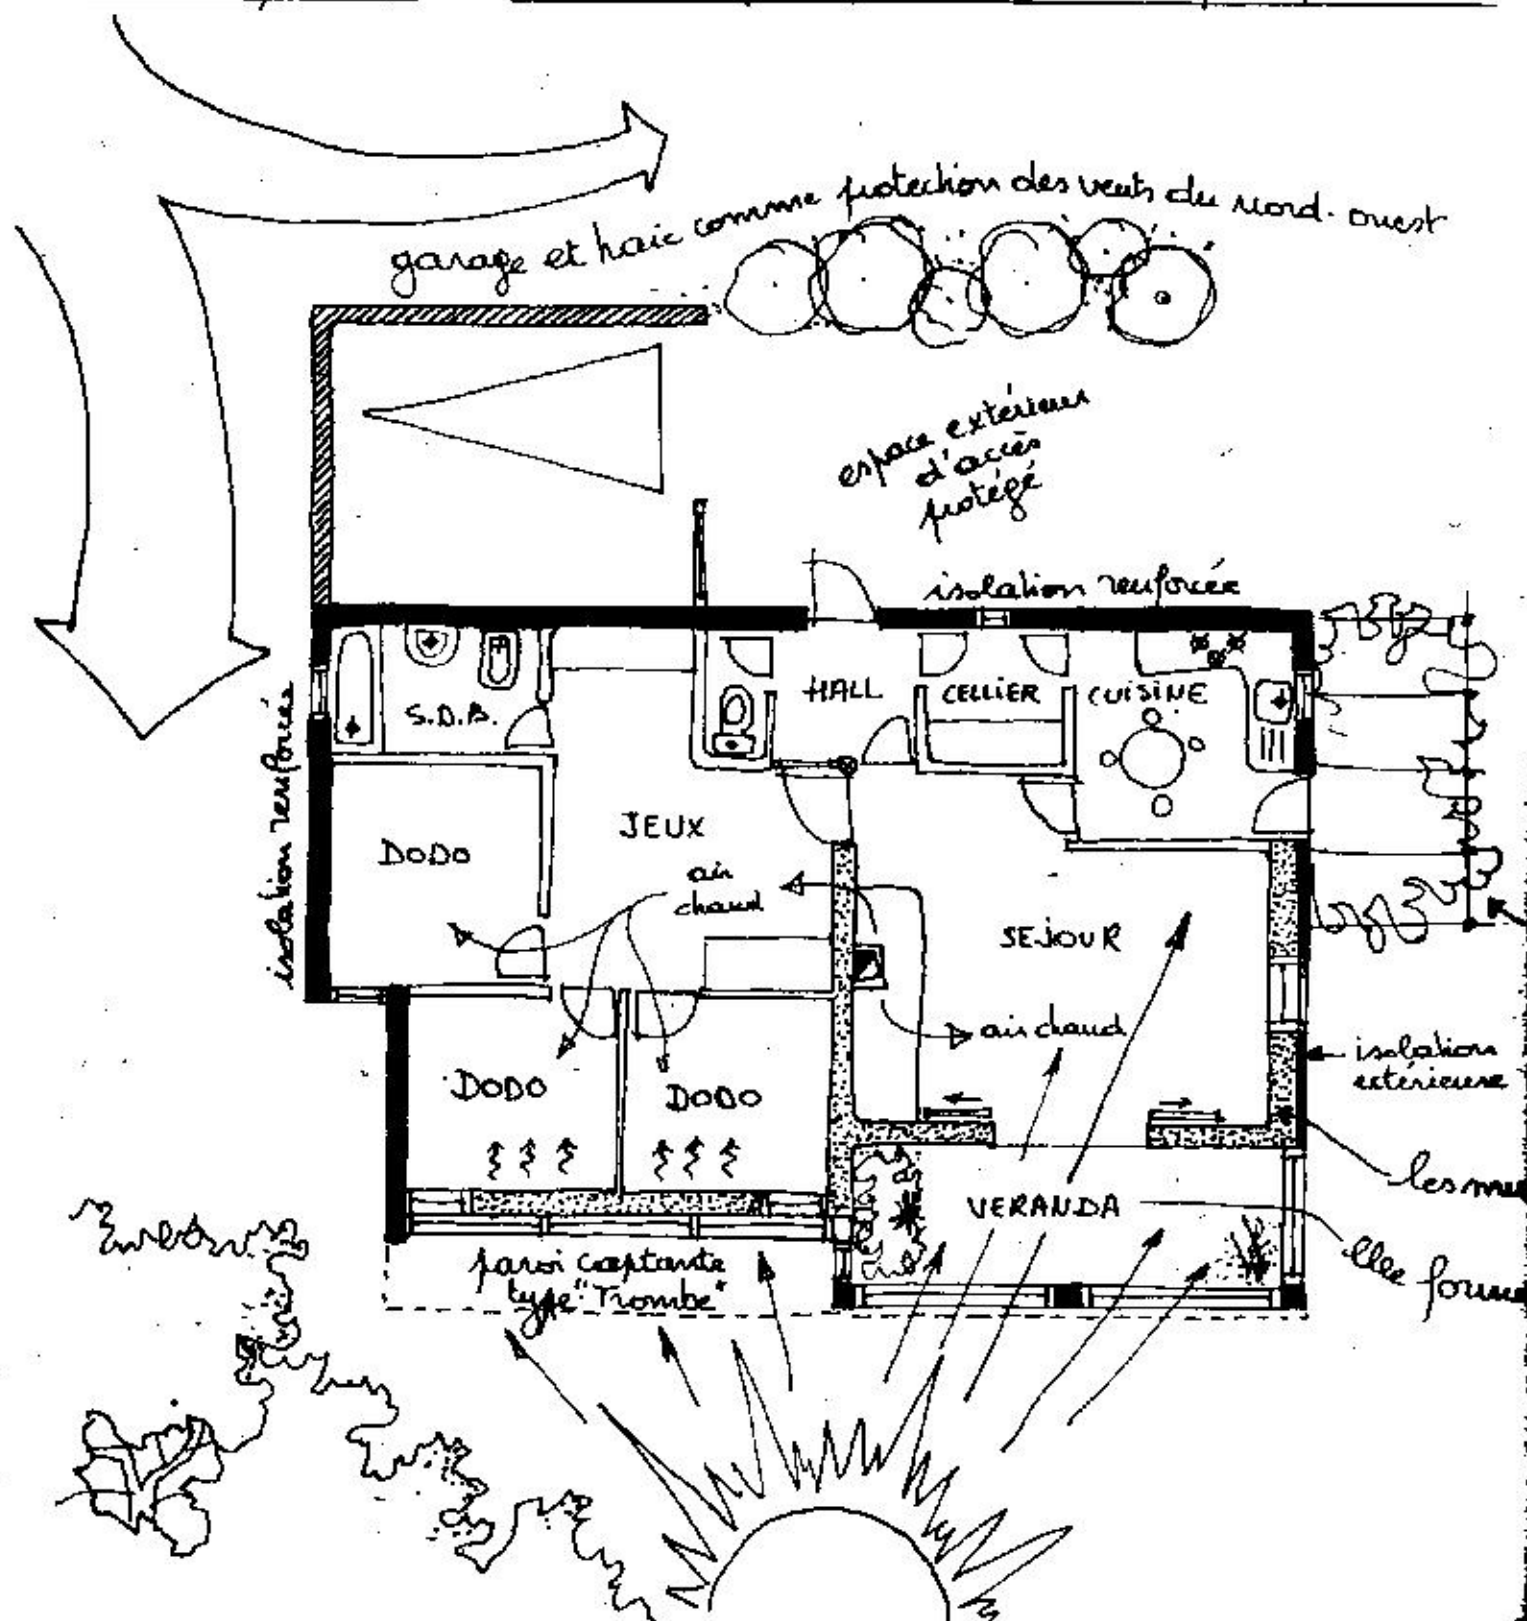 garage et haie comme protection des vents du nord-ouest
espace extérieur
d'accès
protégé
isolation renforcée
isolation renforcée
S.D.B.
HALL
CELLIER
CUISINE
DODO
JEUX
air
chaud
SEJOUR
air chaud
isolation
extérieure
DODO
DODO
les mu
VERANDA
elle forme
paroi captante
type "Trombe"